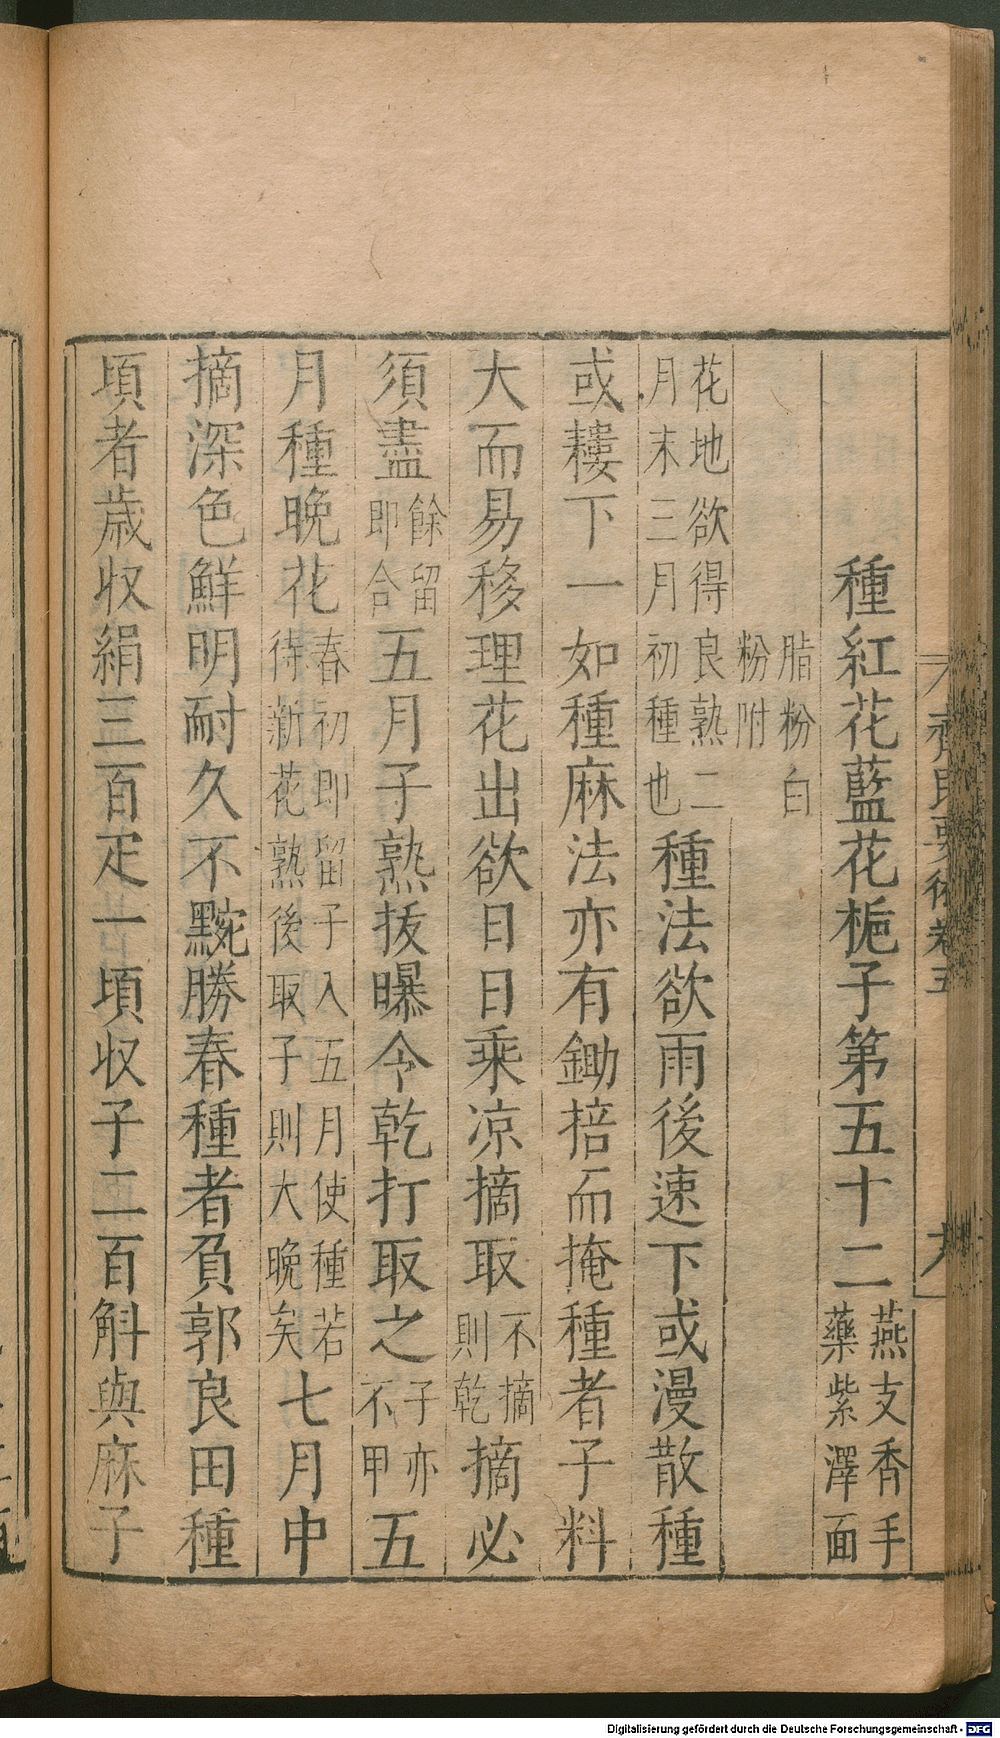 種紅花藍花梔子第五十二燕支香手藥紫澤面
脂粉白粉附
花地欲得良熟二月末三月初種也種法欲雨後速下或漫散種
或耬下一如種麻法亦有鋤掊而掩種者子料
大而易移理花出欲日日乘涼摘取不摘則乾摘必
須盡餘留即合五月子熟拔曝令乾打取之子亦不甲五
月種晚花春初即留子入五月使種若待新花熟後取子則大晚矣七月中
摘深色鮮明耐久不黦勝春種者負郭良田種
頃者歲收絹三百疋一頃收子二百斛與麻子
Digitalisierung gefördert durch die Deutsche Forschungsgemeinschaft - DFG